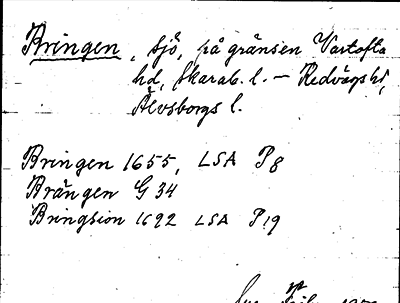 Bringen, sjö, på gränsen Vartofta
hd, Skarab. l. — Redvägs hd,
Älvsborgs l.
Bringen 1655, LSA P8
Brängen G 34
Bringsion 1692 LSA P19